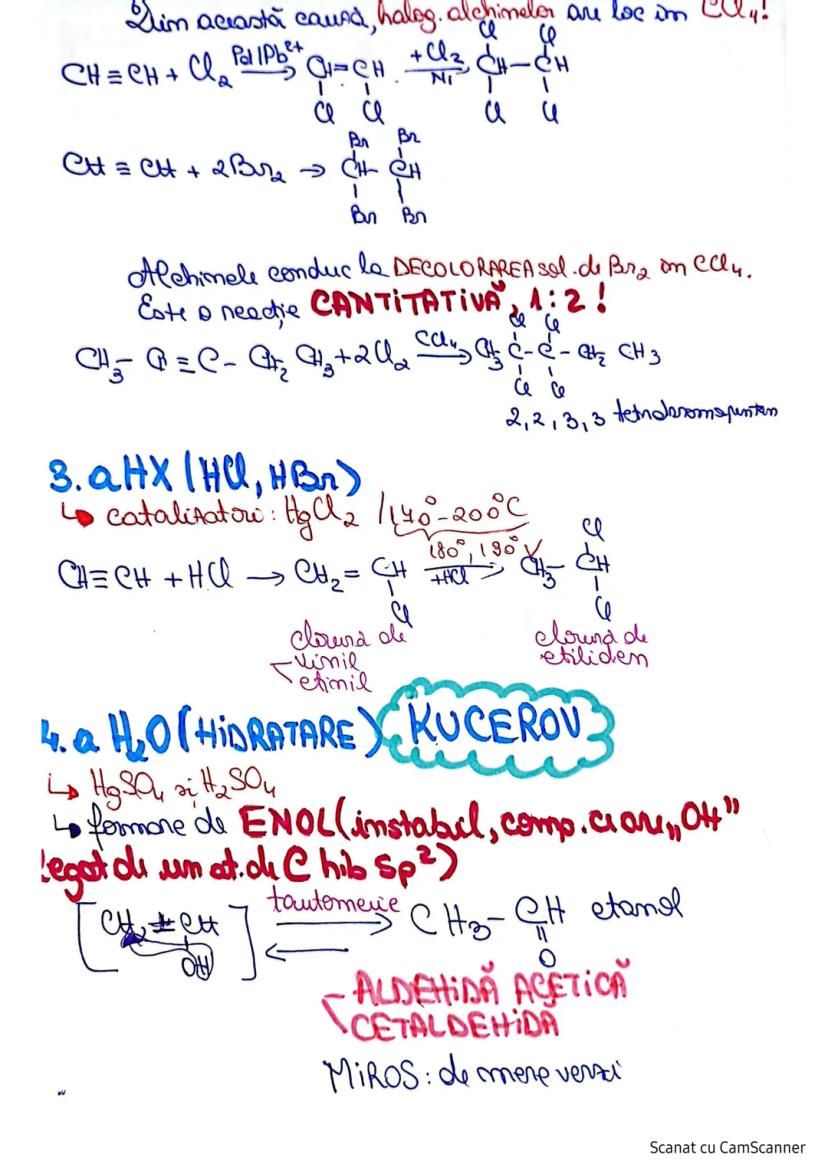 Din această cauză, halog. alchinelor are loc în CCl₄!
Cl Cl
CH≡CH + Cl₂ Pd/Pb²⁺→ CH=CH +Cl₂ Ni→ CH-CH
Cl Cl Cl Cl
Br Br
CH≡CH + 2Br₂ → CH-CH
Br Br
Alchinele conduc la DECOLORAREA sol. de Br₂ în CCl₄.
Este o reacție CANTITATIVĂ, 1:2!
Cl Cl
CH₃-C≡C-CH₂ CH₃+2Cl₂ CCl₄→ CH₃ C-C-CH₂ CH3
Cl Cl
2,2,3,3
3. a HX (HCl, HBr)
↳ catalizatori: HgCl₂ /170°-200°C
180°, 190° Cl
CH≡CH + HCl → CH₂=CH +HCl→ CH₃-CH
Cl Cl
clorură de vinil etinil
clorură de etiliden
4. a H₂O (HiDRATARE) KUCEROV
↳ HgSO₄ și H₂SO₄
↳ formare de ENOL (instabil, comp. ci are „OH”
legat de un at. de C hib sp²)
tautomerie
[CH₂=CH] ⇄ CH₃-CH etanal
OH O
ALDEHiDĂ ACETiCĂ
CETALDEHiDĂ
MiROS: de mere verzi
Scanat cu CamScanner